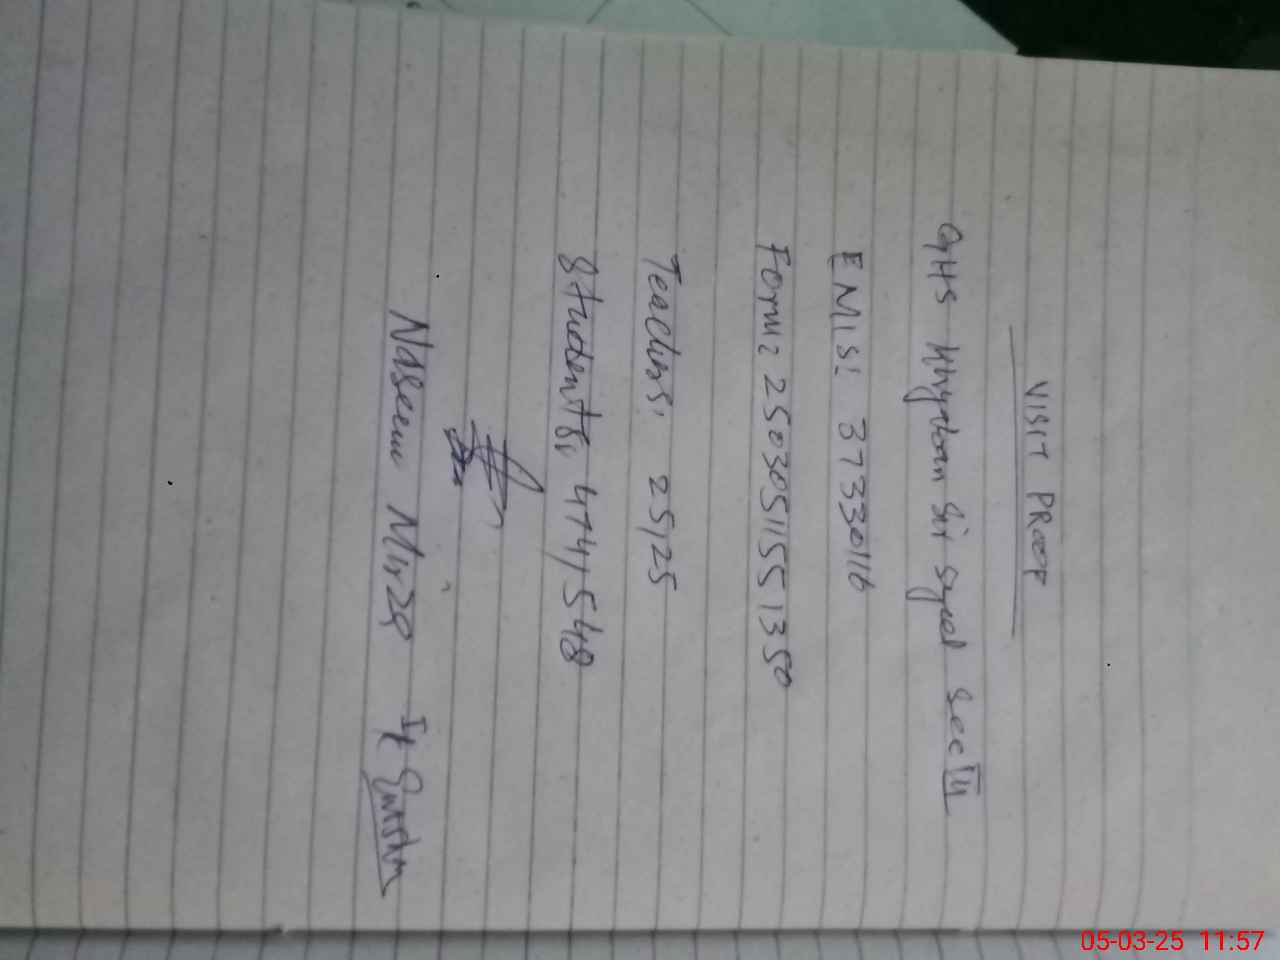 VISIT PROOF
GHS Khyaban Sir Syed Sec III
EMIS: 37330116
Form: 25030511551350
Teachers: 25,25
Students, 474, 548
Naseem Mirza
05-03-25 11:57